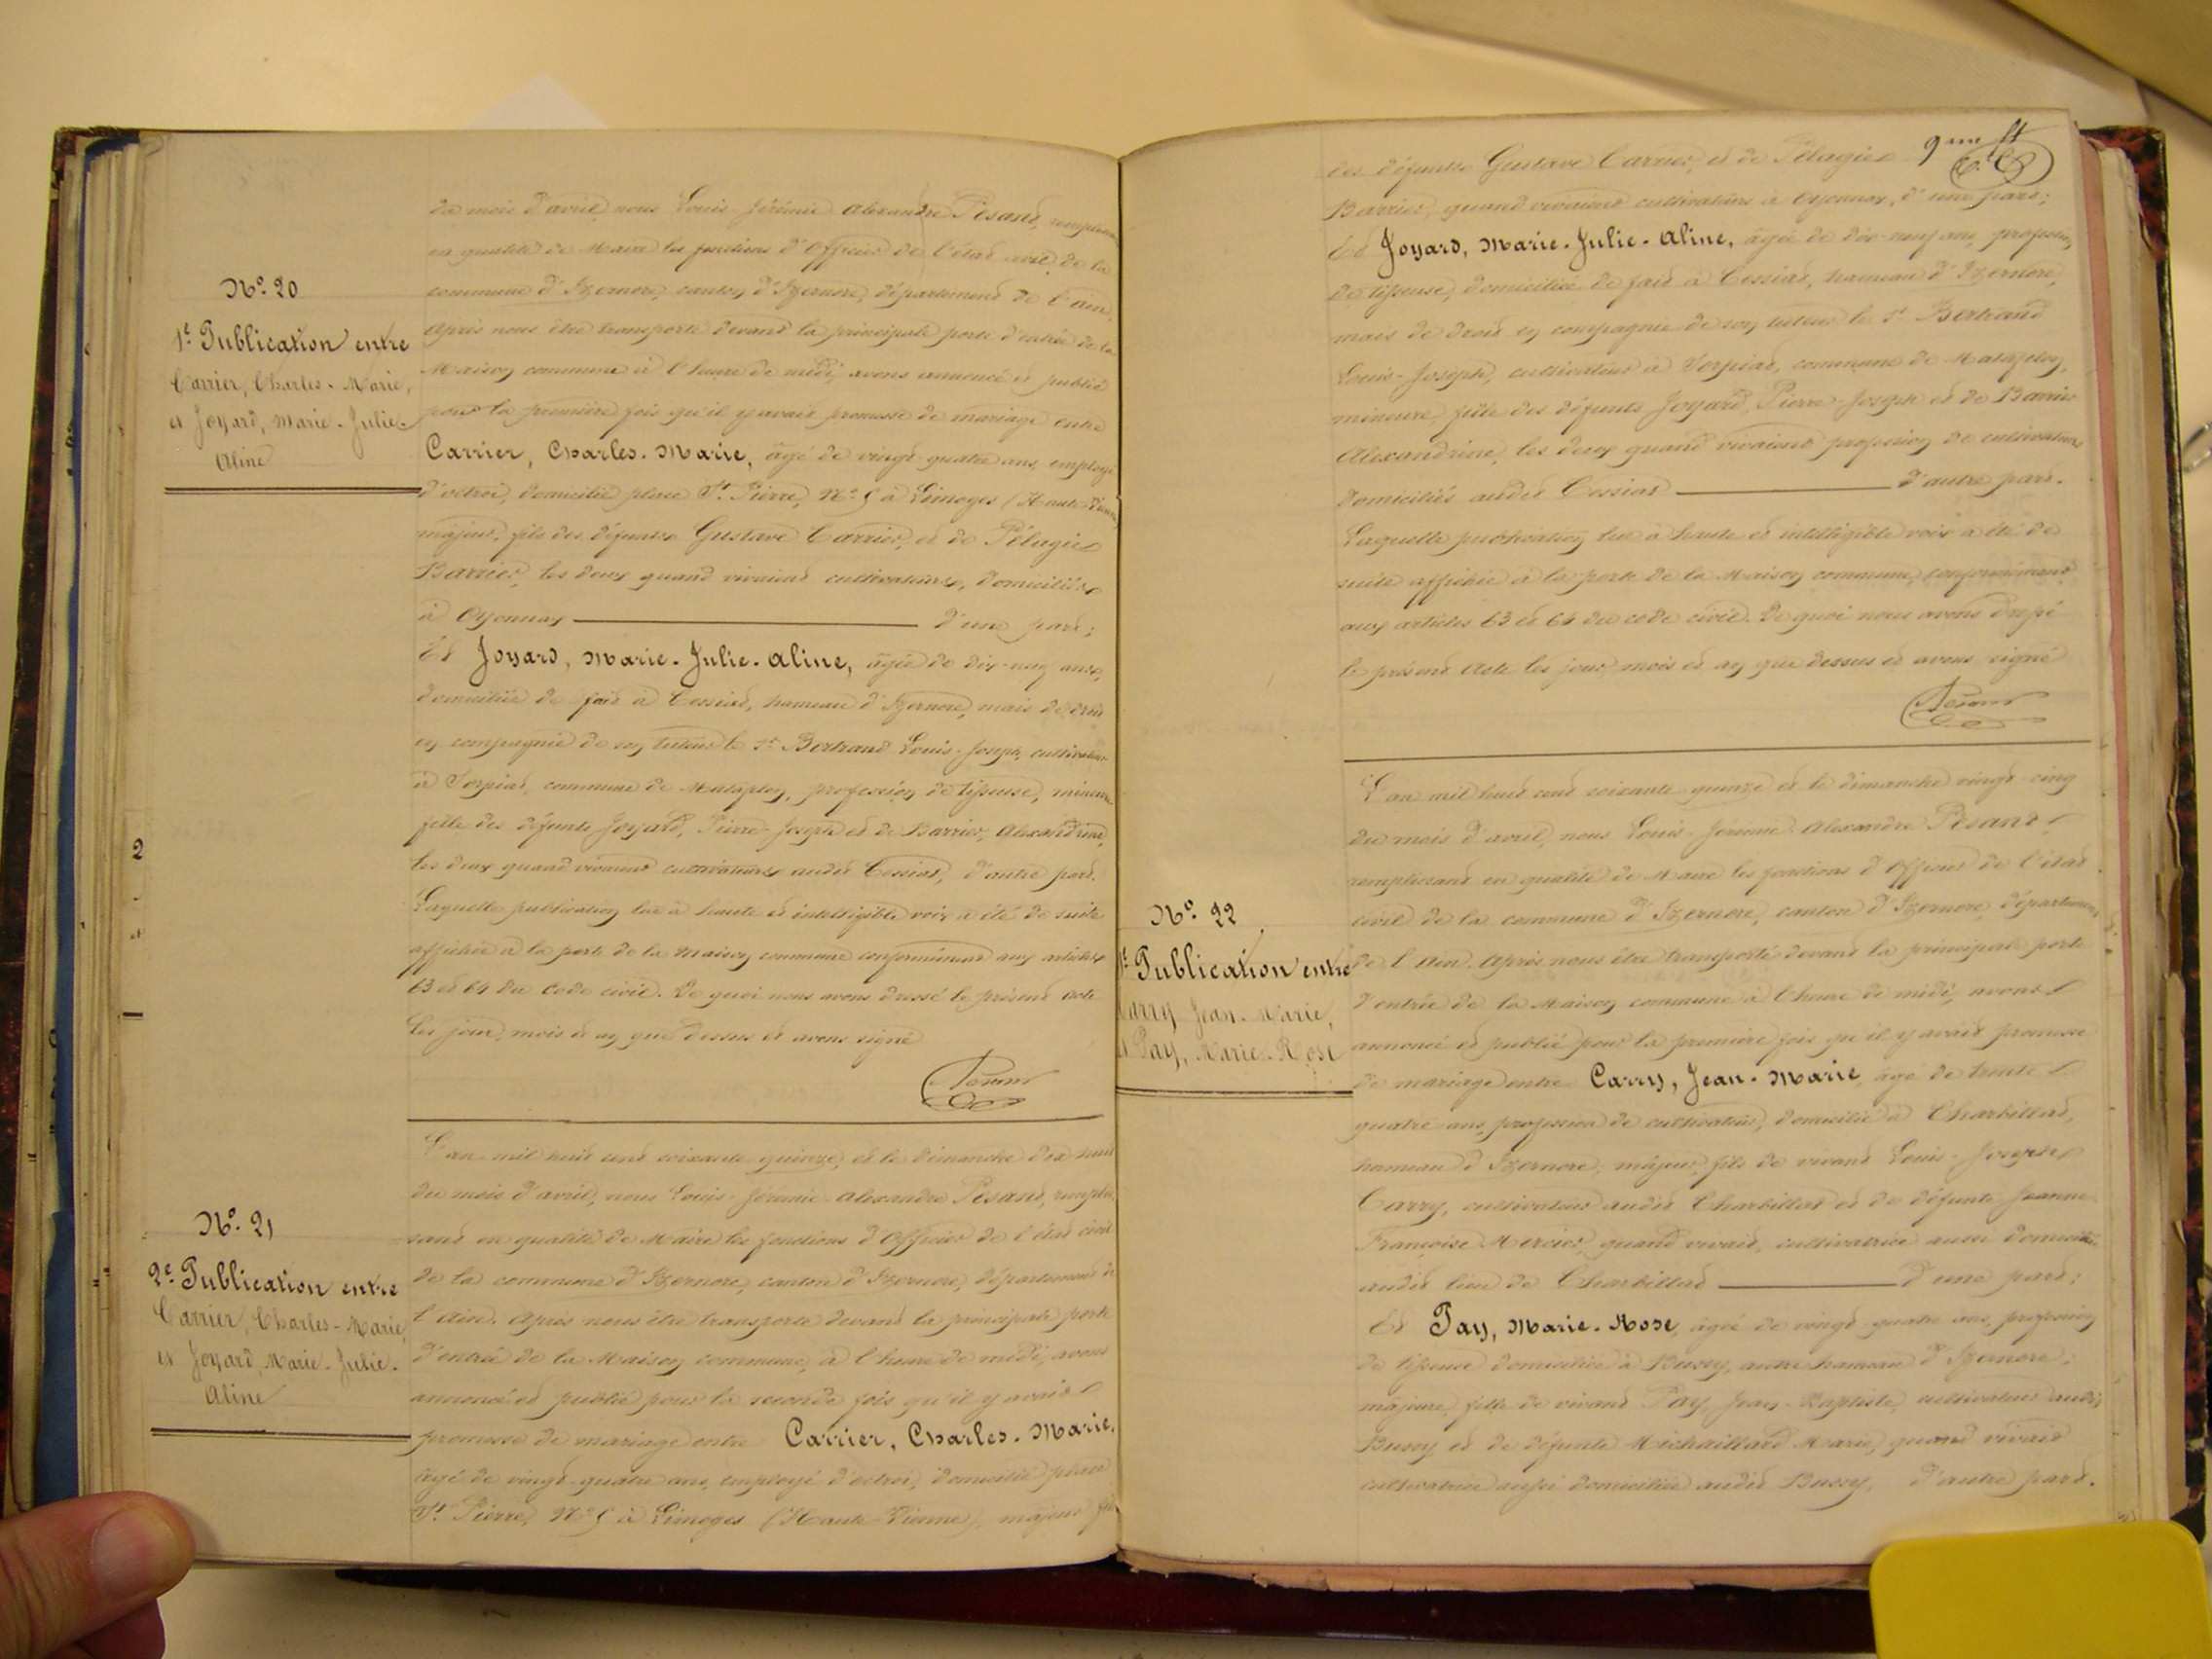 du mois d'avril, nous Louis Jérémie Alexandre Pesant, remplissant
en qualité de Maire les fonctions d'Officier de l'état civil de la
commune d'Izernore, canton d'Izernore, département de l'Ain,
Après nous être transporté devant la principale porte d'entrée de la
Maison commune à l'heure de midi, avons annoncé et publié
pour la première fois qu'il y avait promesse de mariage entre
Carrier, Charles-Marie, âgé de vingt-quatre ans, employé
d'octroi, domicilié place St. Pierre, No 5 à Limoges (Haute-Vienne)
majeur, fils des défunts Gustave Carrier, et de Pélagie
Barrier, les deux quand vivaient cultivateurs, domiciliés
à Oyonnax d'une part;
Et Joyard, Marie-Julie-Aline, âgée de dix-neuf ans,
domiciliée de fait à Cessiat, hameau d'Izernore, mais de droit
en compagnie de son tuteur le sr Bertrand Louis-Joseph, cultivateur
à commune de Matafelon, profession de tisseuse, mineure
fille des défunts Joyard, Pierre-Joseph et de Barrier, Alexandrine,
les deux quand vivaient cultivateurs audit Cessiat, d'autre part.
Laquelle publication lue à haute et intelligible voix a été de suite
affichée à la porte de la Maison commune conformément aux articles
63 et 64 du Code civil. De quoi nous avons dressé le présent acte
les jour, mois et an que dessus et avons signé
Pesant
No. 20
1e Publication entre
Carrier, Charles-Marie,
et Joyard, Marie-Julie-
Aline
L'an mil huit cent soixante quinze, et le dimanche dix huit
du mois d'avril, nous Louis-Jérémie-Alexandre Pesant, remplis
sant en qualité de Maire les fonctions d'Officier de l'état civil
de la commune d'Izernore, canton d'Izernore, département de
l'Ain. Après nous être transporté devant la principale porte
d'entrée de la Maison commune, à l'heure de midi, avons
annoncé et publié pour la seconde fois qu'il y avait
promesse de mariage entre Carrier, Charles-Marie,
âgé de vingt-quatre ans, employé d'octroi, domicilié place
St. Pierre, No 5 à Limoges (Haute-Vienne), majeur fils
No. 21
2e Publication entre
Carrier, Charles-Marie,
et Joyard, Marie-Julie-
Aline
2
des défunts Gustave Carrier, et de Pélagie
Barrier, quand vivaient cultivateurs à Oyonnax, d'une part;
Et Joyard, Marie-Julie-Aline, âgée de dix-neuf ans, profession
de tisseuse, domiciliée de fait à Cessiat, hameau d'Izernore,
mais de droit en compagnie de son tuteur le sr Bertrand
Louis-Joseph, cultivateur à commune de Matafelon,
mineure, fille des défunts Joyard, Pierre-Joseph et de Barrier
Alexandrine, les deux quand vivaient profession de cultivateurs
domiciliés audit Cessiat d'autre part.
Laquelle publication lue à haute et intelligible voix a été de
suite affichée à la porte de la Maison commune, conformément
aux articles 63 et 64 du code civil. De quoi nous avons dressé
le présent acte les jour, mois et an que dessus et avons signé
Pesant
L'an mil huit cent soixante-quinze et le dimanche vingt-cinq
du mois d'avril, nous Louis-Jérémie Alexandre Pesant
remplissant en qualité de Maire les fonctions d'Officier de l'état
civil de la commune d'Izernore, canton d'Izernore, département
de l'Ain. Après nous être transporté devant la principale porte
d'entrée de la Maison commune à l'heure de midi, avons
annoncé et publié pour la première fois qu'il y avait promesse
de mariage entre Carry, Jean-Marie âgé de trente
quatre ans, profession de cultivateur, domicilié à Charbillat,
hameau d'Izernore, majeur, fils de vivant Louis-Joseph
Carry, cultivateur audit Charbillat et de défunte Jeanne
Françoise Mercier, quand vivait, cultivatrice aussi domiciliée
audit lieu de Charbillat d'une part;
Et Pay, Marie-Rose, âgée de vingt-quatre ans, profession
de tisseuse domiciliée à Bussy, autre hameau d'Izernore;
majeure, fille de vivant Pay, Jean-Baptiste, cultivateur audit
Bussy et de défunte Michaillard Marie, quand vivait
cultivatrice aussi domiciliée audit Bussy, d'autre part.
No. 22
1e Publication entre
Carry Jean-Marie,
et Pay, Marie-Rose